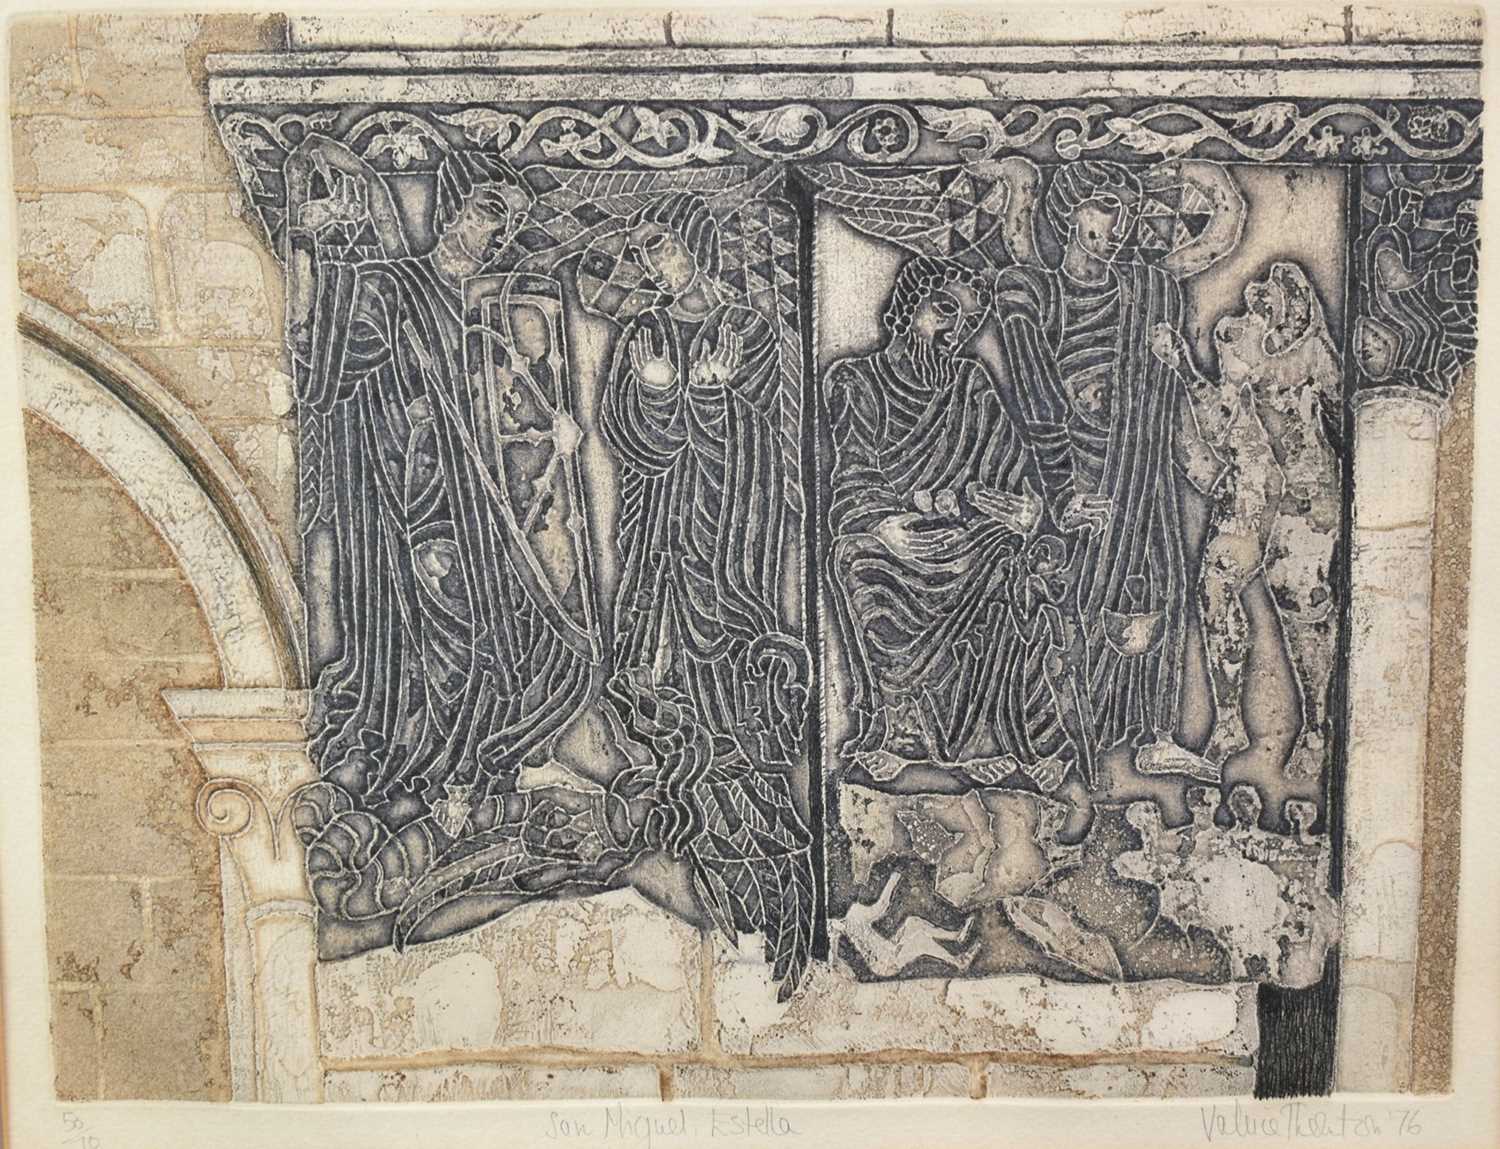 50/10
San Miguel, Estella
Valerie Thornton '76